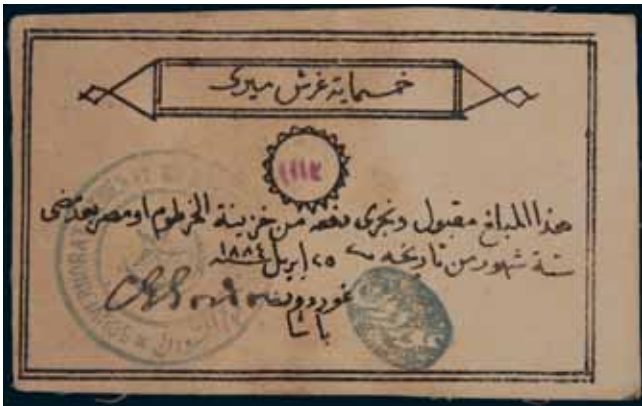 خمسماية غرش ميرى
١١١٢
هذا المبلغ مقبول وتجرى دفعه من خزينة الخرطوم او مصر بعد مضى
ستة شهور من تاريخه ٢٥ ابريل ١٨٨٤
غوردون
باشا